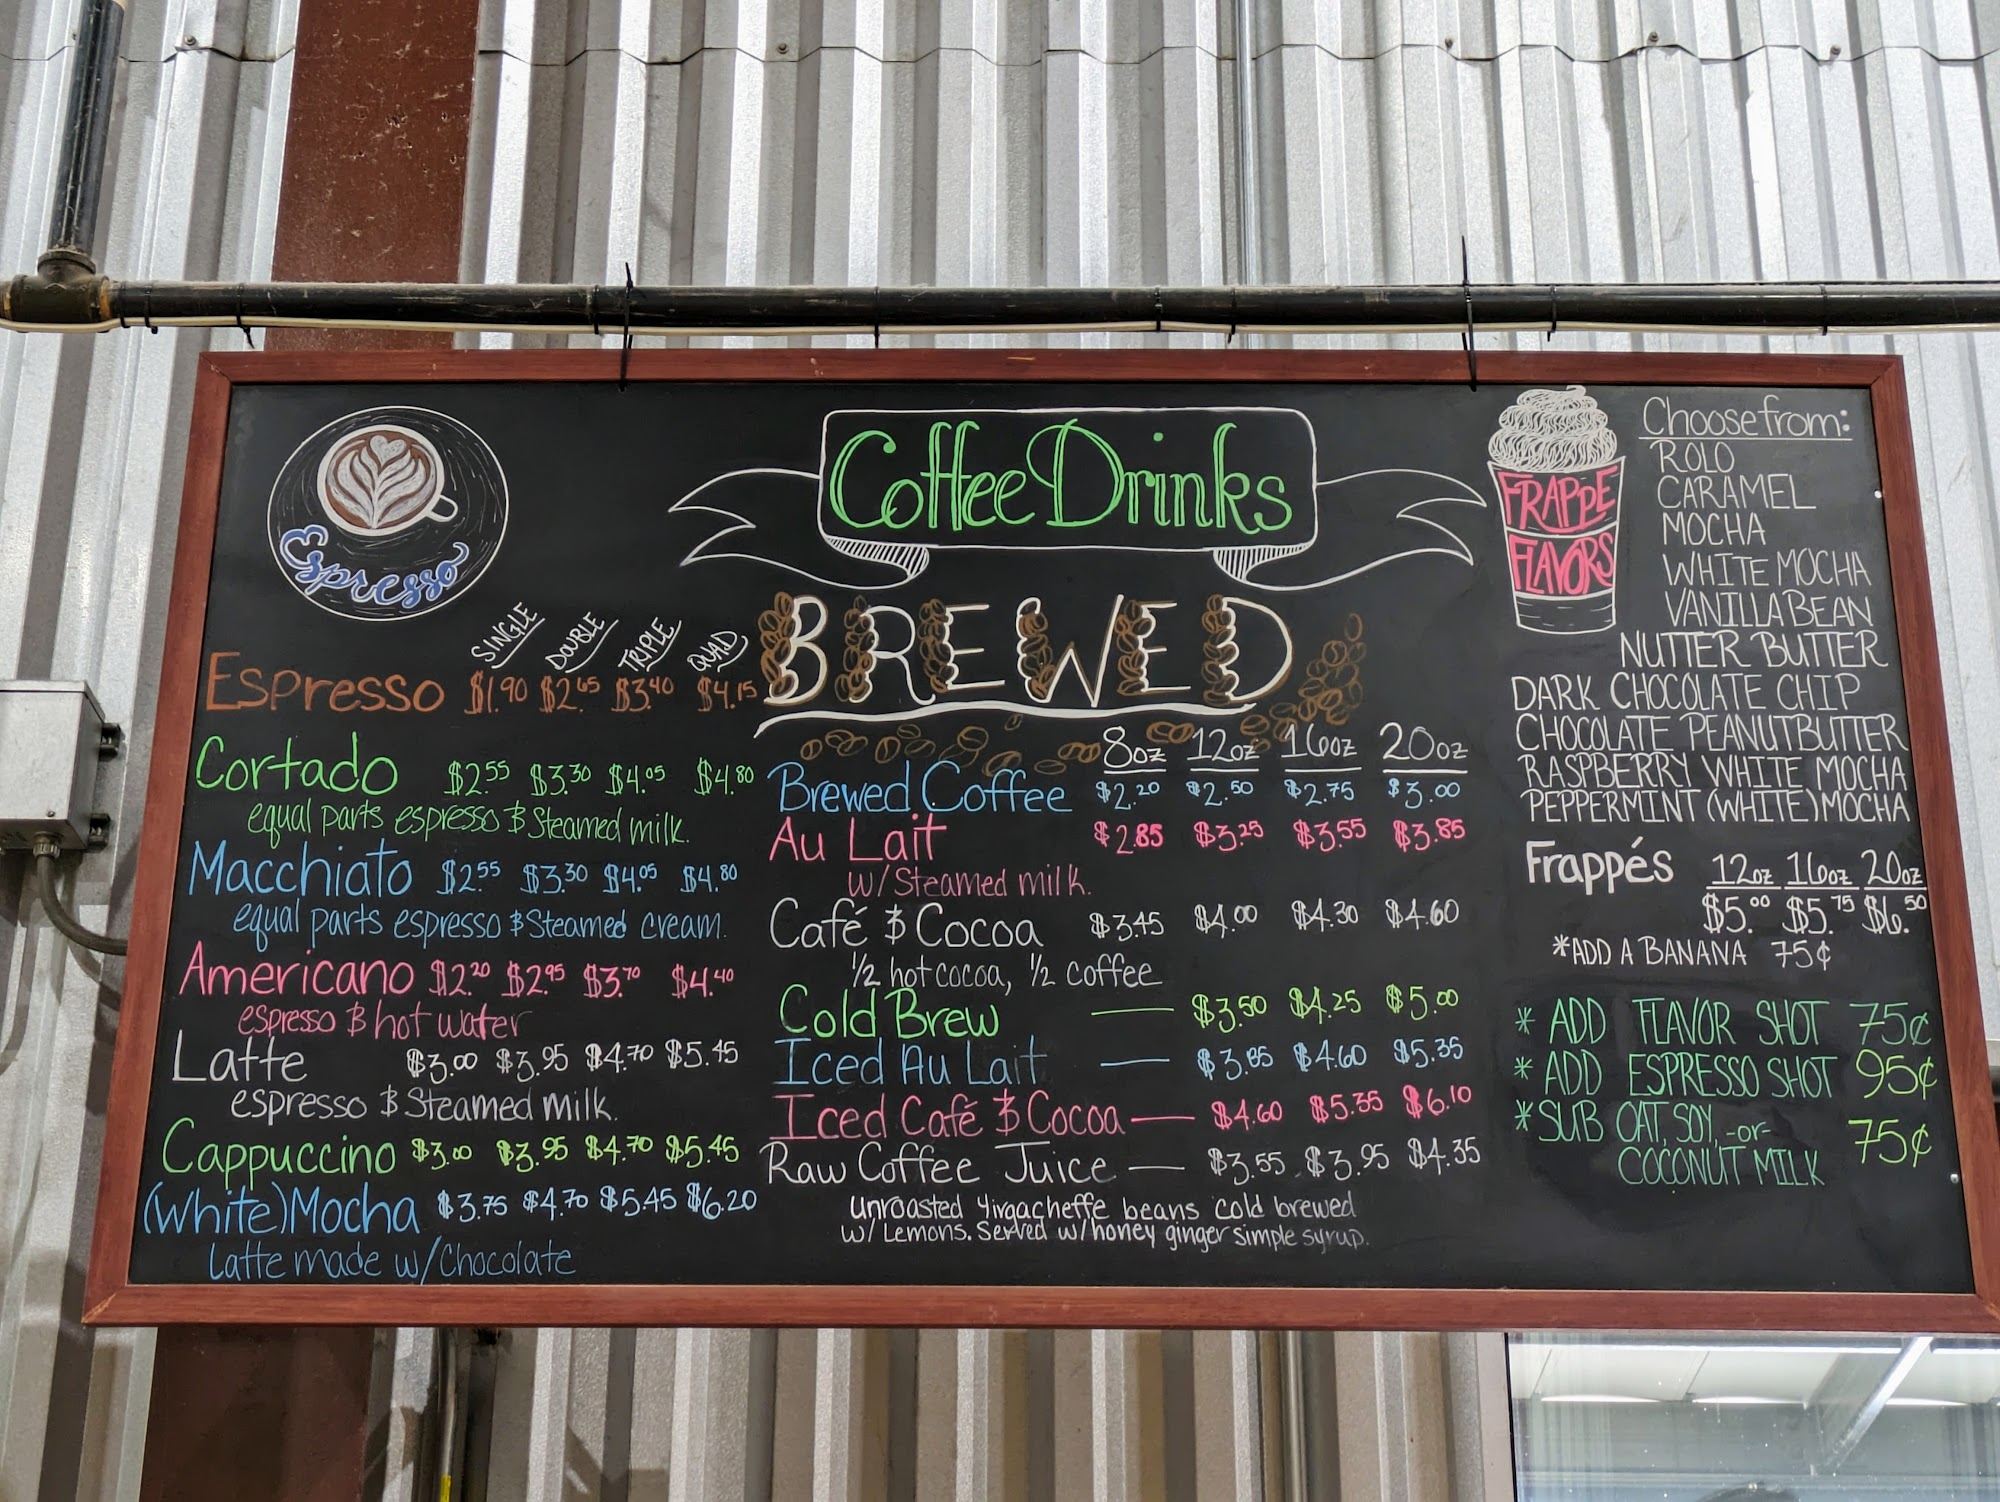 Coffee Drinks
Espresso
SINGLE DOUBLE TRIPLE QUAD
Espresso $1.90 $2.65 $3.40 $4.15
Cortado $2.55 $3.30 $4.05 $4.80
equal parts espresso & Steamed milk.
Macchiato $2.55 $3.30 $4.05 $4.80
equal parts espresso & Steamed cream.
Americano $2.20 $2.95 $3.70 $4.40
espresso & hot water
Latte $3.00 $3.95 $4.70 $5.45
espresso & Steamed milk.
Cappuccino $3.00 $3.95 $4.70 $5.45
(White) Mocha $3.75 $4.70 $5.45 $6.20
Latte made w/Chocolate
BREWED
8oz 12oz 16oz 20oz
Brewed Coffee $2.20 $2.50 $2.75 $3.00
Au Lait $2.85 $3.25 $3.55 $3.85
w/Steamed milk.
Café & Cocoa $3.45 $4.00 $4.30 $4.60
1/2 hot cocoa, 1/2 coffee
Cold Brew — $3.50 $4.25 $5.00
Iced Au Lait — $3.85 $4.60 $5.35
Iced Café & Cocoa — $4.60 $5.35 $6.10
Raw Coffee Juice — $3.55 $3.95 $4.35
Unroasted Yirgacheffe beans cold brewed
w/ Lemons. Served w/honey ginger simple syrup.
FRAPPE
FLAVORS
Choose from:
ROLO
CARAMEL
MOCHA
WHITE MOCHA
VANILLA BEAN
NUTTER BUTTER
DARK CHOCOLATE CHIP
CHOCOLATE PEANUTBUTTER
RASPBERRY WHITE MOCHA
PEPPERMINT (WHITE) MOCHA
Frappés 12oz 16oz 20oz
$5.00 $5.75 $6.50
*ADD A BANANA 75¢
* ADD FLAVOR SHOT 75¢
* ADD ESPRESSO SHOT 95¢
* SUB OAT, SOY, -or-
COCONUT MILK 75¢